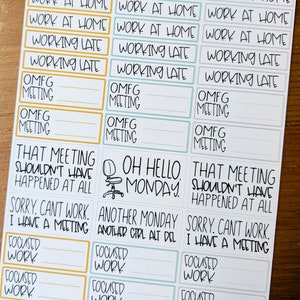 WORK AT HOME WORK AT HOME WORK AT HOME
WORK AT HOME WORK AT HOME WORK AT HOME
WORKING LATE WORKING LATE WORKING LATE
WORKING LATE WORKING LATE WORKING LATE
OMFG OMFG OMFG
MEETING MEETING MEETING
OMFG OMFG OMFG
MEETING MEETING MEETING
THAT MEETING
SHOULDN'T HAVE
HAPPENED AT ALL
OH HELLO,
MONDAY.
THAT MEETING
SHOULDN'T HAVE
HAPPENED AT ALL
SORRY. CAN'T WORK.
I HAVE A MEETING
ANOTHER MONDAY
ANOTHER CTRL ALT DEL
SORRY. CAN'T WORK.
I HAVE A MEETING
FOCUSED FOCUSED FOCUSED
WORK WORK WORK
FOCUSED FOCUSED FOCUSED
WORK WORK WORK